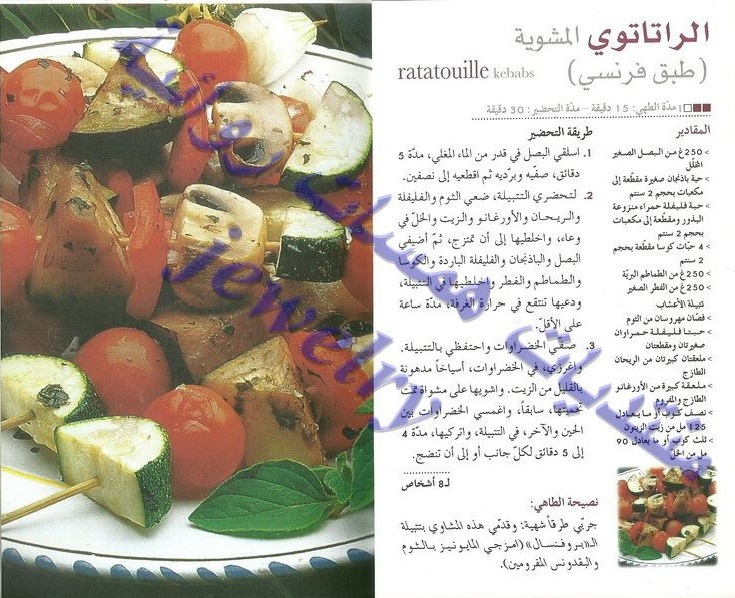 الراتاتوي المشوية
(طبق فرنسي) ratatouille kebabs
مدّة الطهي: 15 دقيقة - مدّة التحضير: 30 دقيقة
المقادير
> 250 غ من البصل الصغير
المخلّل
> حبة باذنجان صغيرة مقطّعة إلى
مكعبات بحجم 2 سنتم
> حبة فليفلة حمراء منزوعة
البذور ومقطّعة إلى مكعبات
بحجم 2 سنتم
> 4 حبّات كوسا مقطّعة بحجم
2 سنتم
> 250 غ من الطماطم البرّية
> 250 غ من الفطر الصغير
تتبيلة الأعشاب
> فصّان مهروسان من الثوم
> حبتا فليفلة حمراوان
صغيرتان ومقطعتان
> ملعقتان كبيرتان من الريحان
الطازج
> ملعقة كبيرة من الأورغانو
الطازج والمفروم
> نصف كوب أو ما يعادل
125 مل من زيت الزيتون
> ثلث كوب أو ما يعادل 90
مل من الخلّ
طريقة التحضير
1. اسلقي البصل في قدر من الماء المغلي، مدّة 5
دقائق، صفّيه وبرّديه ثم اقطعيه إلى نصفين.
2. لتحضري التتبيلة، ضعي الثوم والفليفلة
والريحان والأورغانو والزيت والخلّ في
وعاء، واخلطيها إلى أن تمتزج، ثمّ أضيفي
البصل والباذنجان والفليفلة الباردة والكوسا
والطماطم والفطر واخلطيها في التتبيلة،
ودعيها تنتقع في حرارة الغرفة، مدّة ساعة
على الأقلّ.
3. صفّي الخضراوات واحتفظي بالتتبيلة.
واغرزي، في الخضراوات، أسياخاً مدهونة
بالقليل من الزيت. واشويها على مشواة تمّت
تحميتها، سابقاً، واغمسي الخضراوات بين
الحين والآخر، في التتبيلة، واتركيها، مدّة 4
إلى 5 دقائق لكلّ جانب أو إلى أن تنضج.
لـ8 أشخاص
نصيحة الطاهي:
جربّي طرقاً شهية: وقدّمي هذه المشاوي بتتبيلة
الـ«بروفنسال» (امزجي المايونيز بالثوم
والبقدونس المفرومين).
منتديات همسات روائية
jewelry